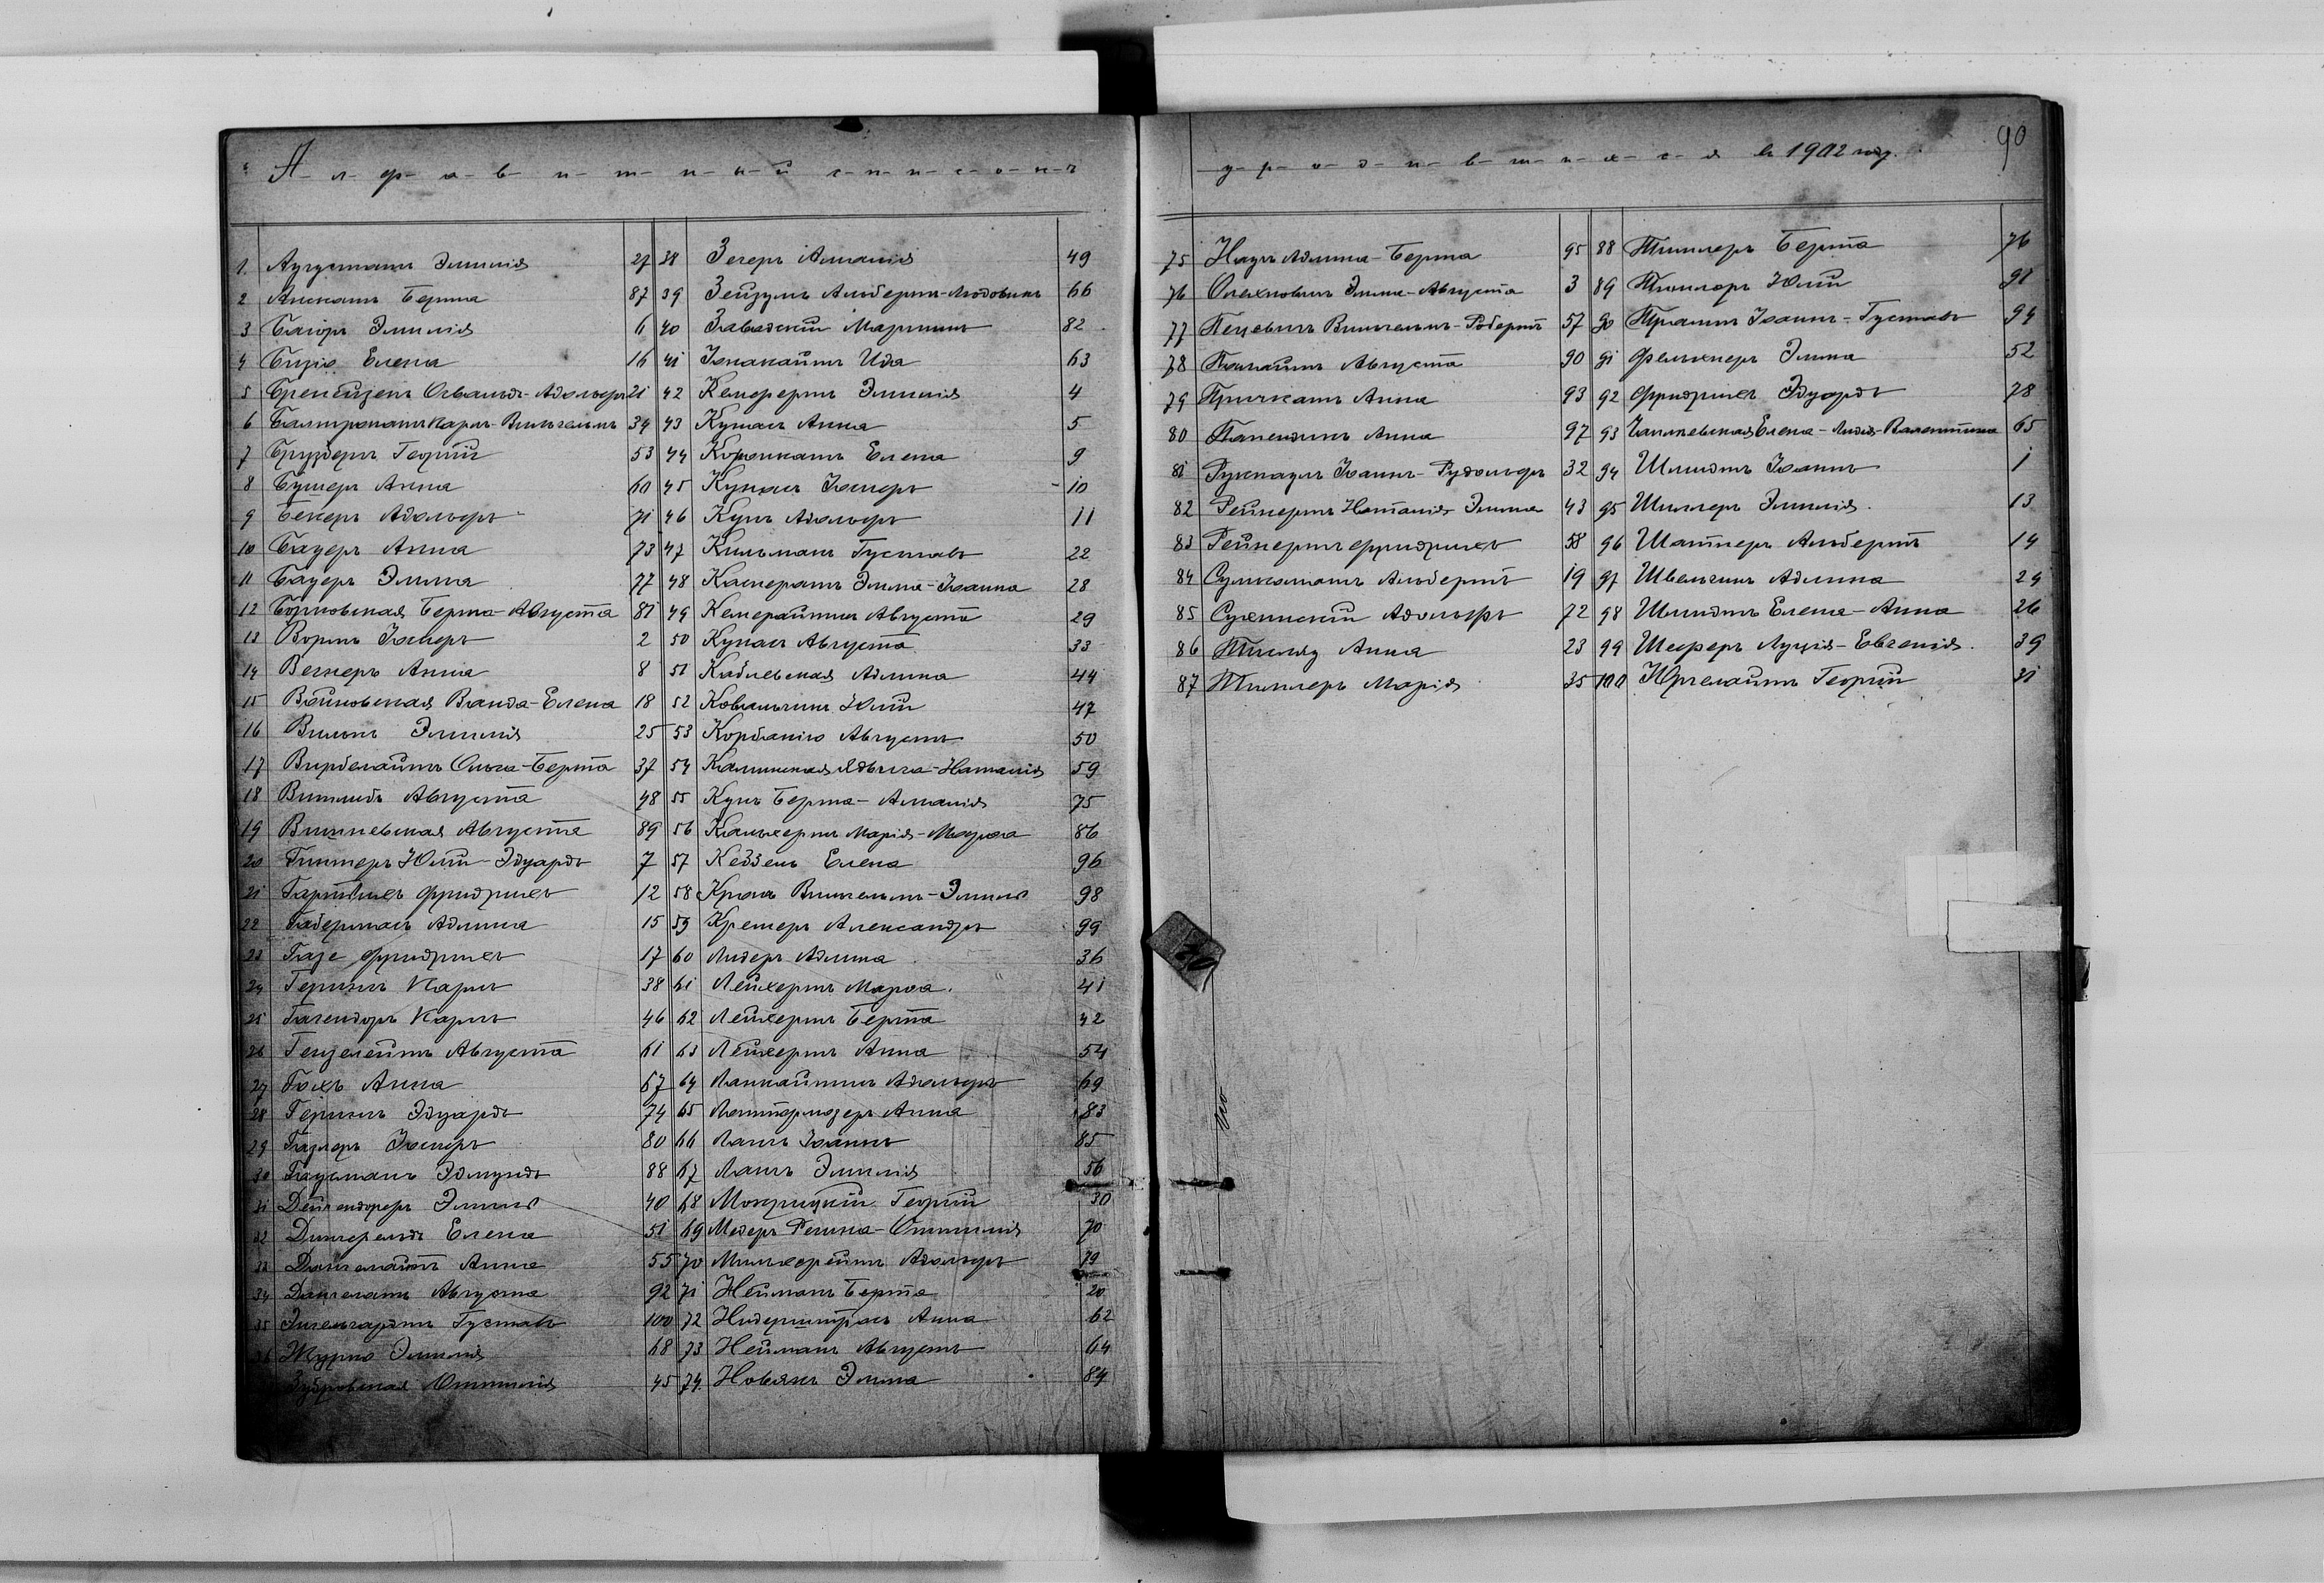 Алфавитный списокъ
у родившихся въ 1902 году.
90
1. Аугустатъ Эмилія 27
2 Анскатъ Берта 87
3 Багоръ Эмилія 6
4 Бирю Елена 16
5 Бренейзенъ Освальдъ-Адольфъ 21
6 Балтронатъ Карлъ-Вильгельмъ 34
7 Бруздертъ Георгій 53
8 Бушеръ Анна 60
9 Бекеръ Адольфъ 71
10 Бауеръ Анна 73
11 Бауеръ Эмма 77
12 Борковская Берта-Августа 81
13 Вормъ Іосифъ 2
14 Вегнеръ Анна 8
15 Войновская Ванда-Елена 18
16 Вилькъ Эмилія 25
17 Вирбелайтъ Ольга-Берта 37
18 Витлибъ Августа 48
19 Вишневская Августа 89
20 Гинтеръ Юлій-Эдуардъ 7
21 Гартвихъ Фридрихъ 12
22 Габерманъ Адлина 15
23 Газе Фридрихъ 17
24 Геригкъ Карлъ 38
25 Гагендорѣ Карлъ 46
26 Гензелейтъ Августа 61
27 Гохъ Анна 67
28 Геригкъ Эдуардъ 74
29 Газлеръ Іосифъ 80
30 Гаусманъ Эдмундъ 88
31 Дейгендореръ Эмиль 40
32 Дингфельдъ Елена 51
33 Дангелайтъ Анна 55
34 Дангелатъ Августа 92
35 Энгельгардтъ Густавъ 100
36 Журно Эмилія 68
Зубровская Оттилія 45
38 Зегеръ Амалія 49
39 Зейгумъ Альбертъ-Людовикъ 66
40 Завадскій Мартинъ 82
41 Іонакайтъ Ида 63
42 Кемфертъ Эмилія 4
43 Кунасъ Анна 5
44 Корюнкатъ Елена 9
45 Кунасъ Іосифъ 10
46 Кунъ Адольфъ 11
47 Кильманъ Густавъ 22
48 Касператъ Эмма-Іоанна 28
49 Кемерайтисъ Августа 29
50 Кунасъ Августа 33
51 Кабилевская Адлина 44
52 Ковальчикъ Юлій 47
53 Корбаніо Августъ 50
54 Калинская Ядвига-Наталія 59
55 Кунъ Берта-Амалія 75
56 Калькертъ Марія-Магда 86
57 Кедзель Елена 96
58 Кроль Вильгельмъ-Эмиль 98
59 Кремеръ Александръ 99
60 Лидеръ Адлина 36
61 Лейхертъ Марѳа. 41
62 Лейхертъ Берта 42
63 Лейхертъ Анна 54
64 Ланкайтисъ Адольфъ 69
65 Латтермозеръ Анна 83
66 Лангъ Іоаннъ 85
67 Лангъ Эмилія 56
68 Мокрицкій Георгій 30
69 Медеръ Регина-Оттилія 70
70 Мильхерейтъ Адольфъ 79
71 Нейманъ Берта 20
72 Нидерштрасъ Анна 62
73 Нейманъ Августъ 64
74. Новакъ Эмма 84
75 Наузъ Адлина-Берта 95
76 Олехновичъ Эмма-Августа 3
77 Пецевичъ Вильгельмъ-Робертъ 57
78 Покайтъ Августа 90
79 Причкатъ Анна 93
80 Папендикъ Анна 97
81 Рункпаулъ Іоаннъ-Рудольфъ 32
82 Рейнертъ Наталія Эмма 43
83 Рейнертъ Фридрихъ 58
84 Сулкоматъ Альбертъ 19
85 Сухинскій Адольфъ 72
86 Тисляу Анна 23
87 Тиллеръ Марія 35
88 Тиллеръ Берта 76
89 Тиллеръ Юлій 91
90 Трамтъ Іоаннъ-Густавъ 94
91 Фелькнеръ Эмма 52
92 Фридрихъ Эдуардъ 78
93 Чаплевская Елена-Лидія-Валентина 65
94 Шмидтъ Іоаннъ 1
95 Шиллеръ Эмилія. 13
96 Шаттнеръ Альбертъ 14
97 Швельгинъ Адлина 24
98 Шмидтъ Елена-Анна 26
99 Шеферъ Луція-Евгенія. 39
100 Юргелайтъ Георгій 31